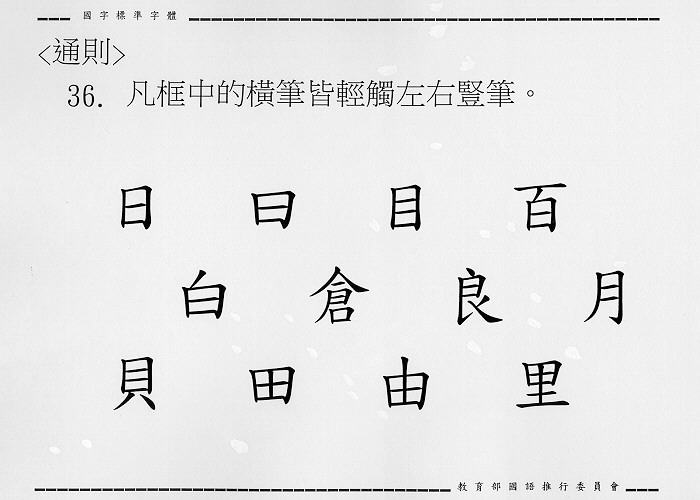 國字標準字體
<通則>
36. 凡框中的橫筆皆輕觸左右豎筆。
日 曰 目 百
白 倉 良 月
貝 田 由 里
教育部國語推行委員會